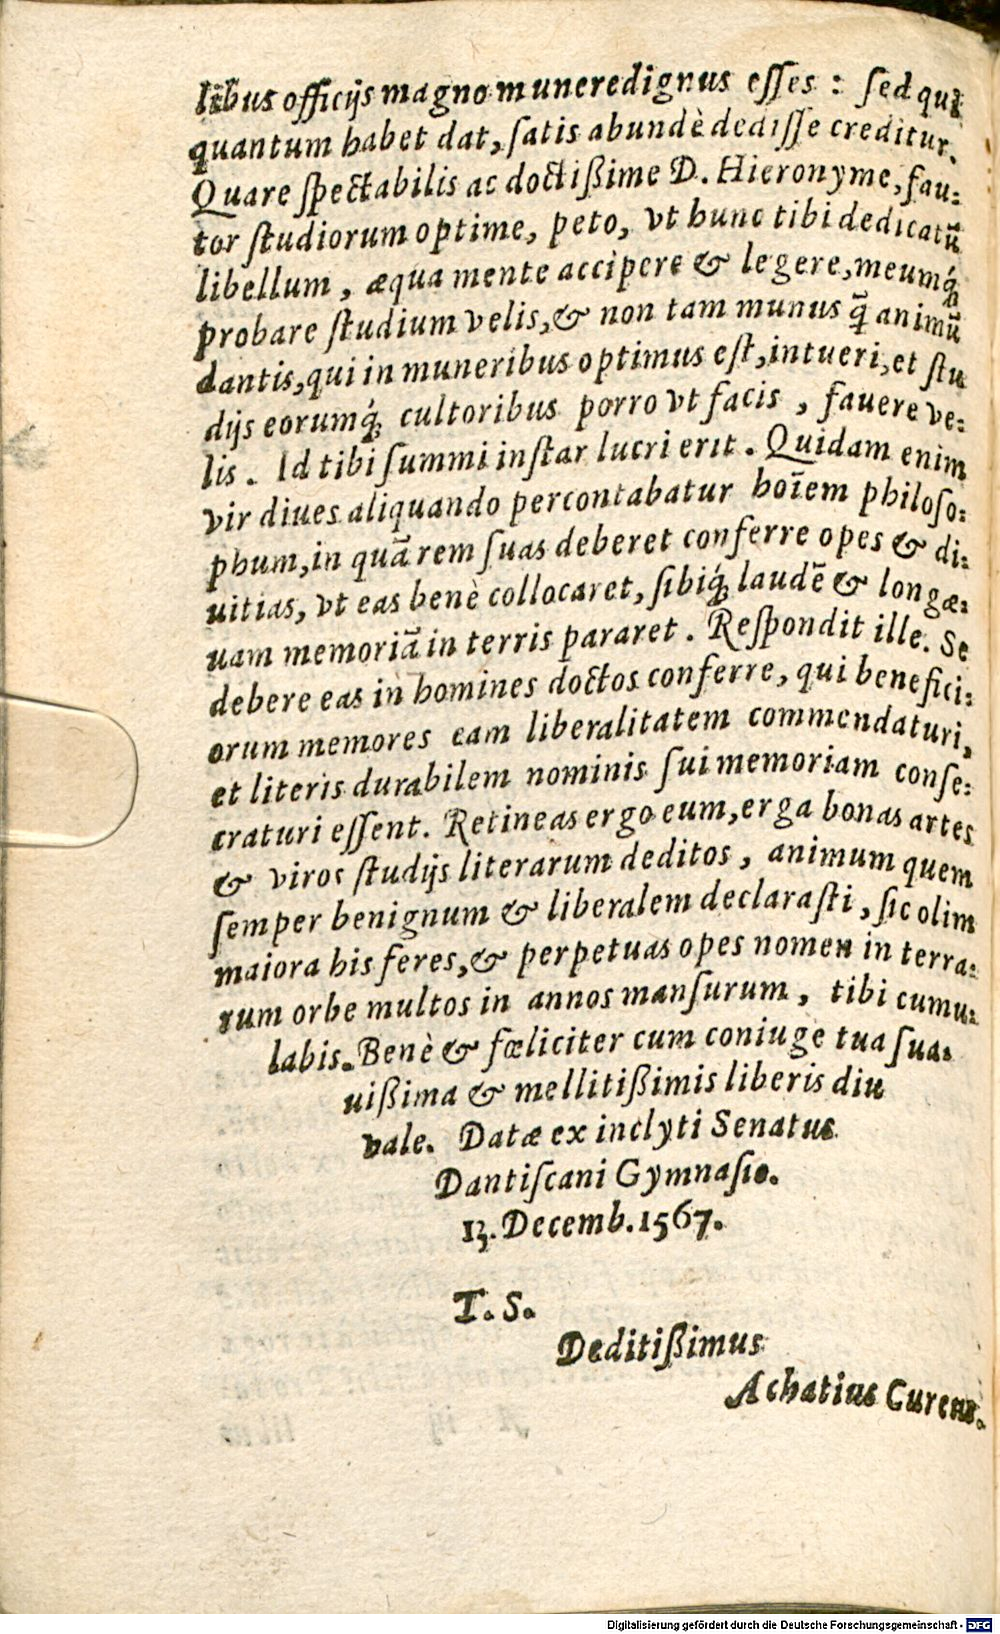 libus officijs magno munere dignus eſſes : ſed qui
quantum habet dat, ſatis abundè dediſſe creditur.
Quare ſpectabilis ac doctißime D. Hieronyme, fau⸗
tor ſtudiorum optime, peto, vt hunc tibi dedicatũ
libellum, æqua mente accipere & legere, meumq́;
probare ſtudium velis, & non tam munus q̃ animũ
dantis, qui in muneribus optimus eſt, intueri, et ſtu
dijs eorumq́; cultoribus porro vt facis, fauere ve⸗
lis. Id tibi ſummi inſtar lucri erit. Quidam enim
vir diues aliquando percontabatur hoĩem philoſo⸗
phum, in quã rem ſuas deberet conferre opes & di⸗
uitias, vt eas benè collocaret, ſibiq́; laudẽ & longæ⸗
uam memoriã in terris pararet. Reſpondit ille. Se
debere eas in homines doctos conferre, qui benefici⸗
orum memores eam liberalitatem commendaturi,
et literis durabilem nominis ſui memoriam conſe⸗
craturi eſſent. Retineas ergo eum, erga bonas artes
& viros ſtudijs literarum deditos, animum quem
ſemper benignum & liberalem declaraſti, ſic olim
maiora his feres, & perpetuas opes nomen in terra⸗
rum orbe multos in annos manſurum, tibi cumu⸗
labis. Benè & fœliciter cum coniuge tua ſua⸗
uißima & mellitißimis liberis diu
vale. Datæ ex inclyti Senatus
Dantiſcani Gymnaſio.
13. Decemb. 1567.
T. S.
Deditißimus
Achatius Cureus.
Digitalisierung gefördert durch die Deutsche Forschungsgemeinschaft - DFG